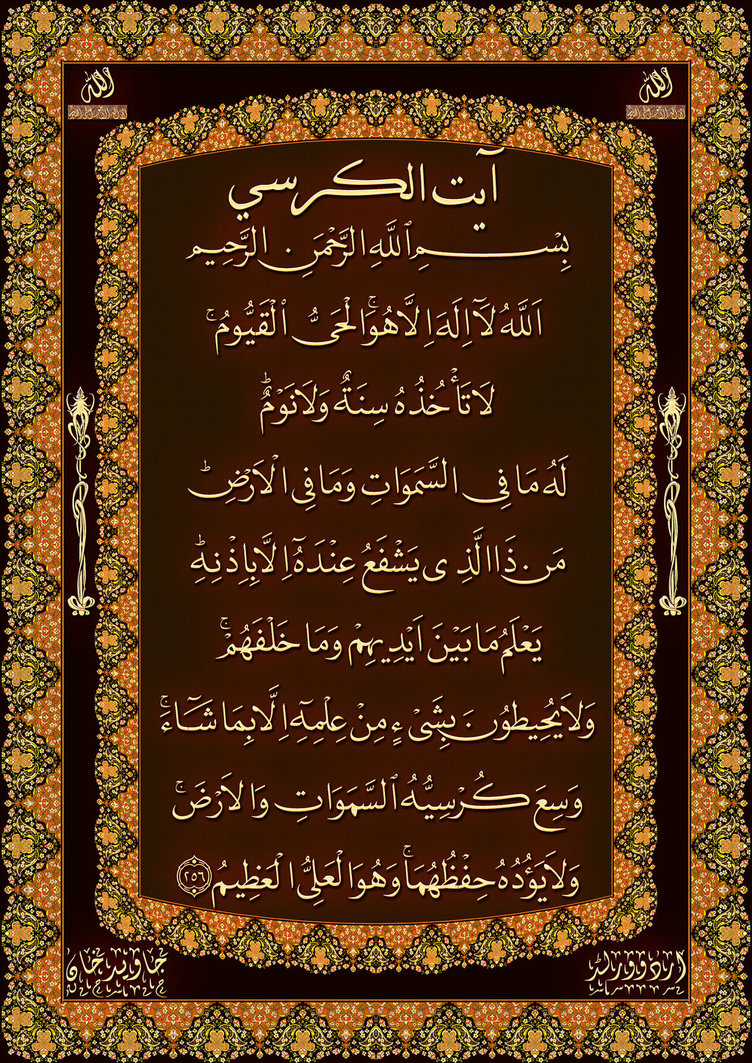 الله
الله
آیت الکرسي
بِسْمِ ٱللَّهِ الرَّحْمَنِ الرَّحِيمِ
اَللَّهُ لَآ اِلَهَ اِلَّا هُوَۚ الْحَىُّ ٱلْقَيُّومُۚ
لَا تَأْخُذُهُ سِنَةٌ وَلَا نَوْمٌؕ
لَهُ مَا فِى السَّمَوَاتِ وَمَا فِى الْاَرْضِؕ
مَن ذَا الَّذِى يَشْفَعُ عِنْدَهُٓ اِلَّا بِاِذْنِهِؕ
يَعْلَمُ مَا بَيْنَ اَيْدِيهِمْ وَمَا خَلْفَهُمْۚ
وَلَا يُحِيطُونَ بِشَىْءٍ مِنْ عِلْمِهِٓ اِلَّا بِمَا شَآءَۚ
وَسِعَ كُرْسِيُّهُ ٱلسَّمَوَاتِ وَالْاَرْضَۚ
وَلَا يَؤُدُهُ حِفْظُهُمَاۚ وَهُوَ الْعَلِىُّ الْعَظِيمُ ٢٥٦
اردو ورلڈ
جاوید خان